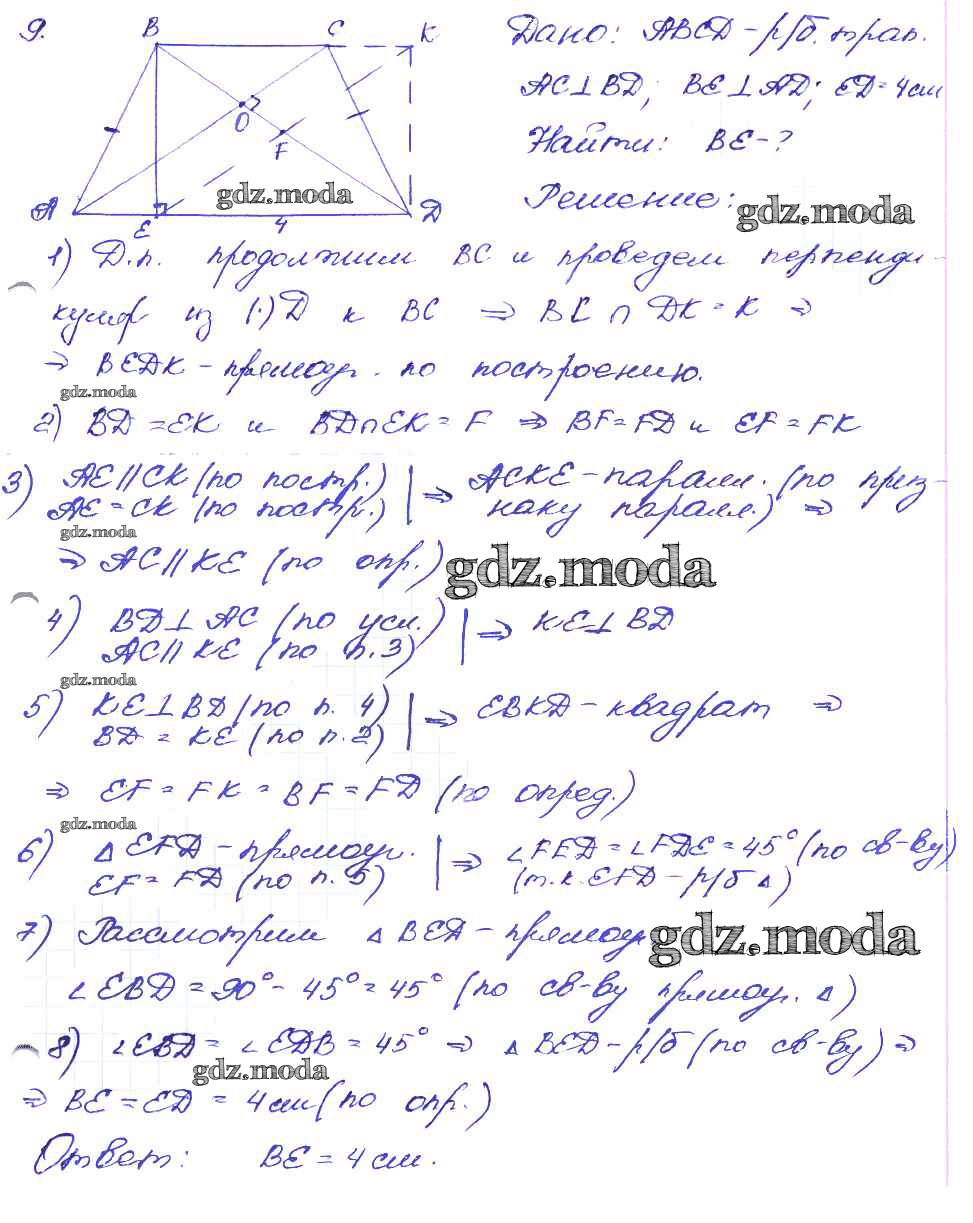 9.
B C K
Дано: ABCD - р/б. трап.
AC⊥BD; BE⊥AD; ED=4см
O
F
Найти: BE-?
A E 4 D
gdz.moda
Решение:
gdz.moda
1) Д.п. продолжим BC и проведем перпенди-
куляр из (·)D к BC ⇒ BC ∩ DK = K ⇒
⇒ BEDK - прямоуг. по построению.
gdz.moda
2) BD = EK и BD∩EK = F ⇒ BF=FD и EF=FK
3) AE∥CK (по постр.) | ⇒ ACKE - паралл. (по приз-
AE=CK (по постр.) | наку паралл.) ⇒
gdz.moda
⇒ AC∥KE (по опр.)
gdz.moda
4) BD⊥AC (по усл.) | ⇒ KE⊥BD
AC∥KE (по п.3)
gdz.moda
5) KE⊥BD (по п. 4) | ⇒ EBKD - квадрат ⇒
BD = KE (по п.2)
⇒ EF = FK = BF = FD (по опред.)
gdz.moda
6) △EFD - прямоуг. | ⇒ ∠FED=∠FDE=45° (по св-ву)
EF=FD (по п. 5) | (т.к. EFD - р/б △)
7) Рассмотрим △BED - прямоуг
gdz.moda
∠EBD = 90° - 45° = 45° (по св-ву прямоуг. △)
8) ∠EBD = ∠EDB = 45° ⇒ △BED - р/б (по св-ву) ⇒
gdz.moda
⇒ BE = ED = 4см (по опр.)
Ответ: BE = 4см.